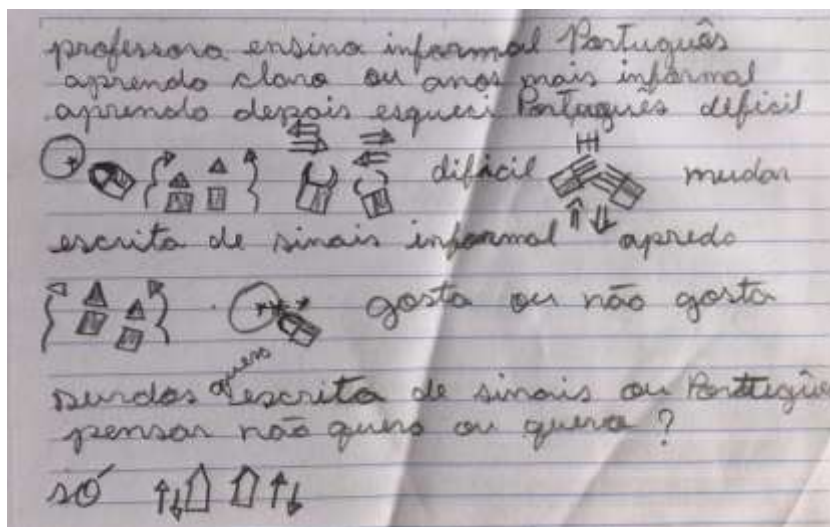 professora ensina informal Português
aprendo claro ou anos mais informal
aprendo depois esqueci Português dificil
difícil mudar
escrita de sinais informal apredo
gosta ou não gosta
surdos quero escrita de sinais ou Porttugûe
pensar não quero ou quero ?
só